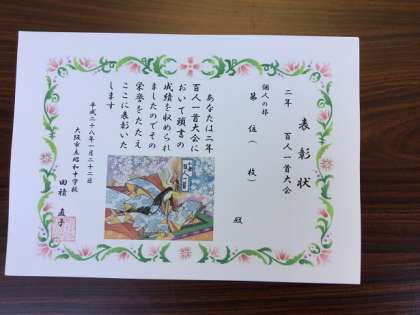 表彰状
二年　百人一首大会
個人の部
第　位（　枚）
殿
あなたは二年
百人一首大会に
おいて頭書の
成績を収められ
ましたのでその
栄誉をたたえ
ここに表彰いた
します
平成二十八年一月二十二日
大阪市立昭和中学校
田積　直子